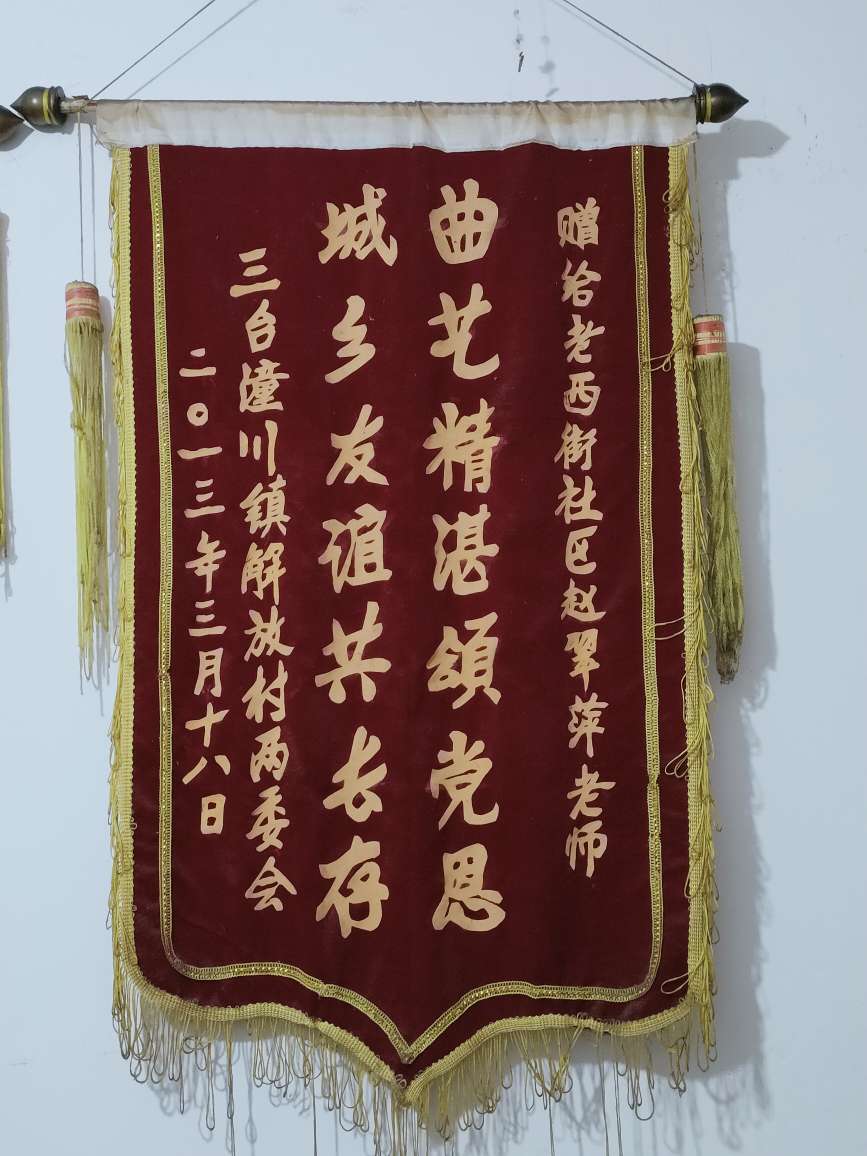 赠给老西街社区赵翠萍老师
曲艺精湛颂党恩
城乡友谊共长存
三台潼川镇解放村两委会
二〇一三年三月十八日